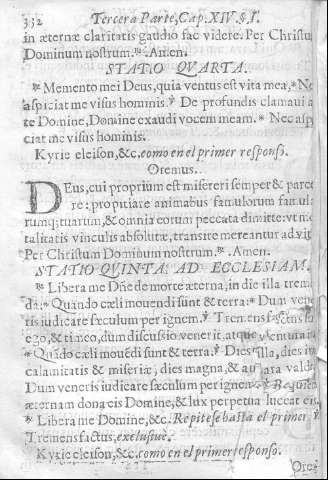 332 Tercera Parte, Cap. XIV. §. I.
in æternæ claritatis gaudio fac videre. Per Christũ
Dominum nostrum. ℟. Amen.
STATIO QVARTA.
℟. Memento mei Deus, quia ventus est vita mea, * Ne
aspiciat me visus hominis. ℣ De profundis clamaui a
te Domine, Domine exaudi vocem meam. * Nec asp
ciat me visus hominis.
Kyrie eleison, &c. como en el primer responso.
Oremus.
DEus, cui proprium est misereri semper & parce
re: propitiare animabus famulorum famula
rumq; tuarum, & omnia eorum peccata dimitte: vt mo
talitatis vinculis absolutæ, transire mereantur ad vit
Per Christum Dominum nostrum. ℟. Amen.
STATIO QVINTA: AD ECCLESIAM.
℟. Libera me Dñe de morte æterna, in die illa trem
da: * Quando cæli mouendi sunt & terra: * Dum vene
ris iudicare sæculum per ignem. ℣. Tremens factus
ego, & timeo, dum discussio venerit, atque ventura
* Quãdo cæli mouẽdi sũnt & terra. ℣ Dies illa, dies iræ
calamitatis & miseriæ; dies magna, & amara valde
Dum veneris iudicare sæculum per ignem. ℣. Requiem
æternam dona eis Domine, & lux perpetua luceat eis.
℟ Libera me Domine, &c. Repitese hasta el primer ℣
Tremens factus, exclusiue.
Kyrie eleison, &c. como en el primer responso.
Ore-